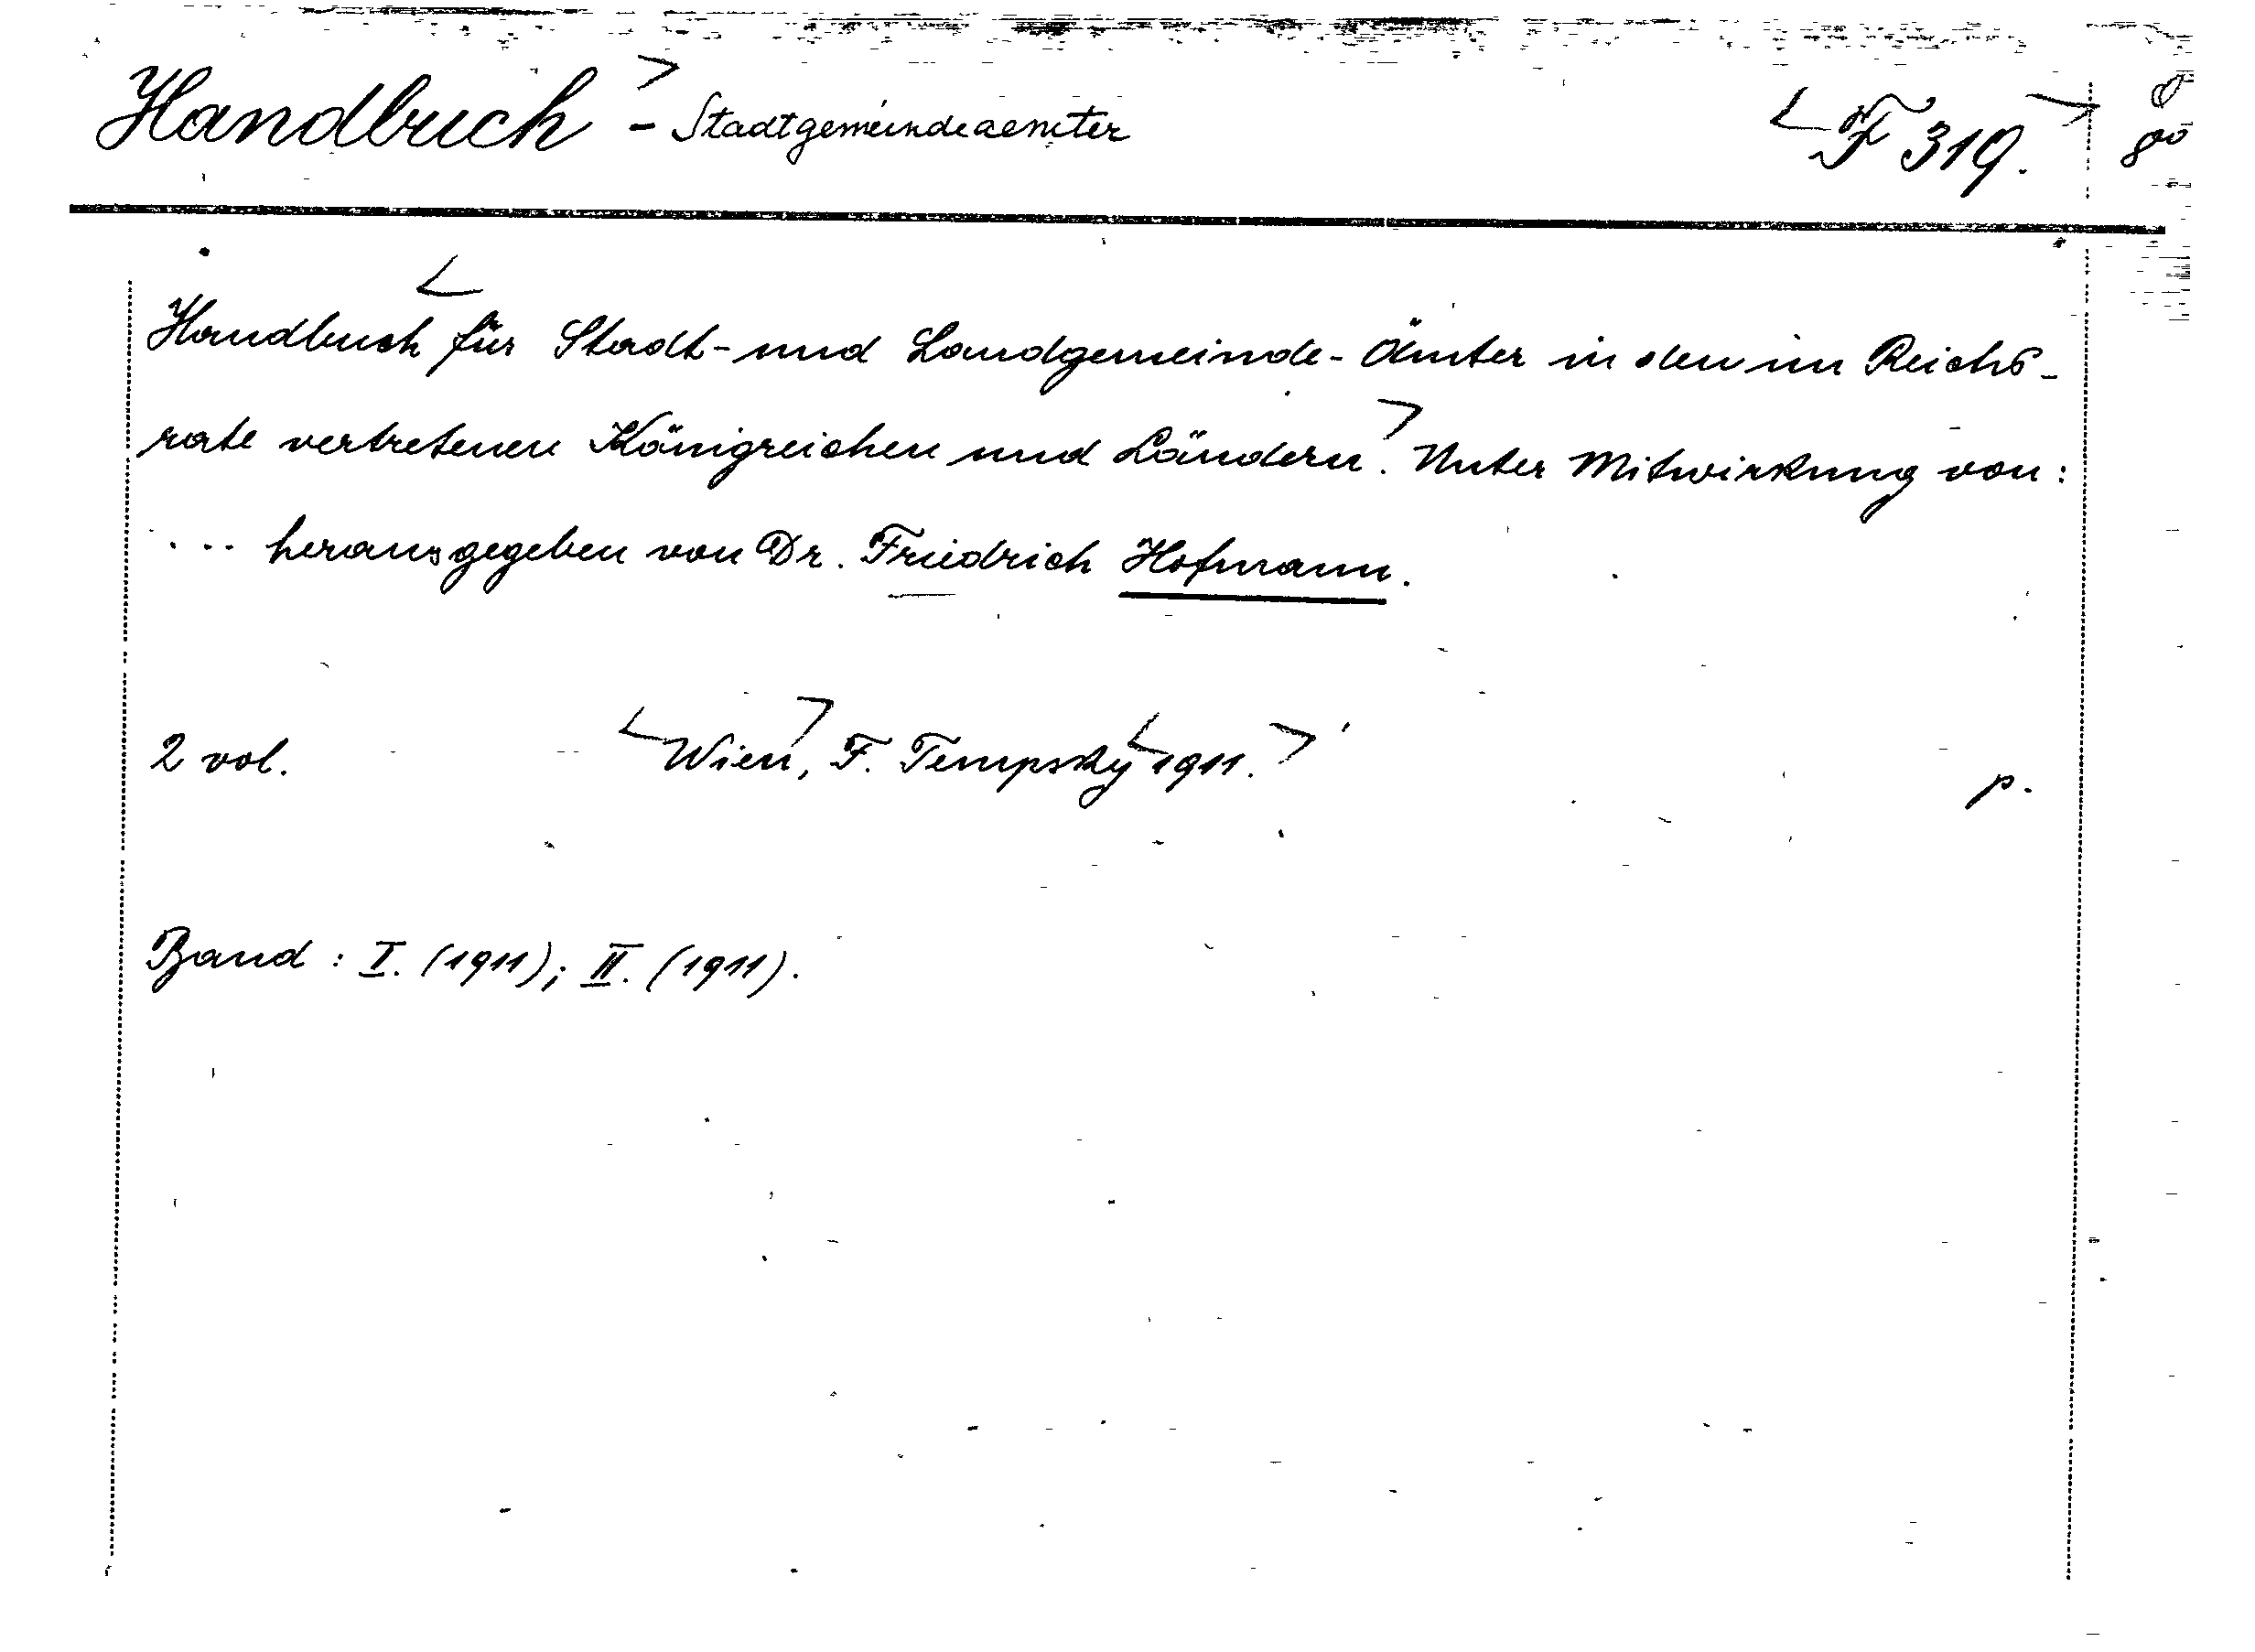 Handbuch - Stadtgemeindeaemter F 319. 8°
Handbuch für Stadt- und Landgemeinde-Ämter in den im Reichs-
rate vertretenen Königreichen und Ländern. Unter Mitwirkung von:
... herausgegeben von Dr. Friedrich Hofmann.
2 vol. Wien, F. Tempsky 1911. p.
Band: I. (1911); II. (1911).